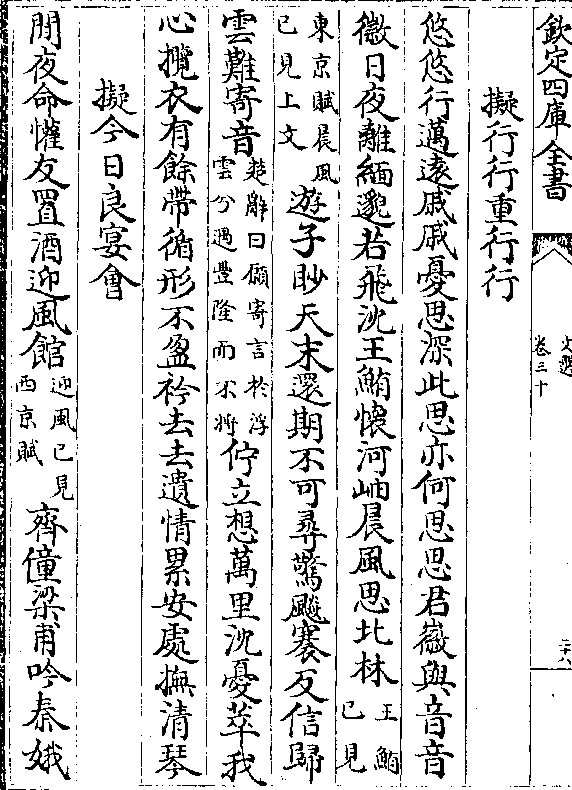 欽定四庫全書
文選
卷三十
二十八
擬行行重行行
悠悠行邁遠戚戚憂思深此思亦何思思君徽與音音
徽日夜離緬邈若飛沈王鮪懷河岫晨風思北林王鮪已見
東京賦晨風已見上文遊子眇天末還期不可尋驚飈褰反信歸
雲難寄音楚辭曰願寄言於浮雲兮遇豐隆而不將佇立想萬里沈憂萃我
心攬衣有餘帶循形不盈衿去去遺情累安處撫清琴
擬今日良宴會
閒夜命懽友置酒迎風館迎風已見西京賦齊僮梁甫吟秦娥